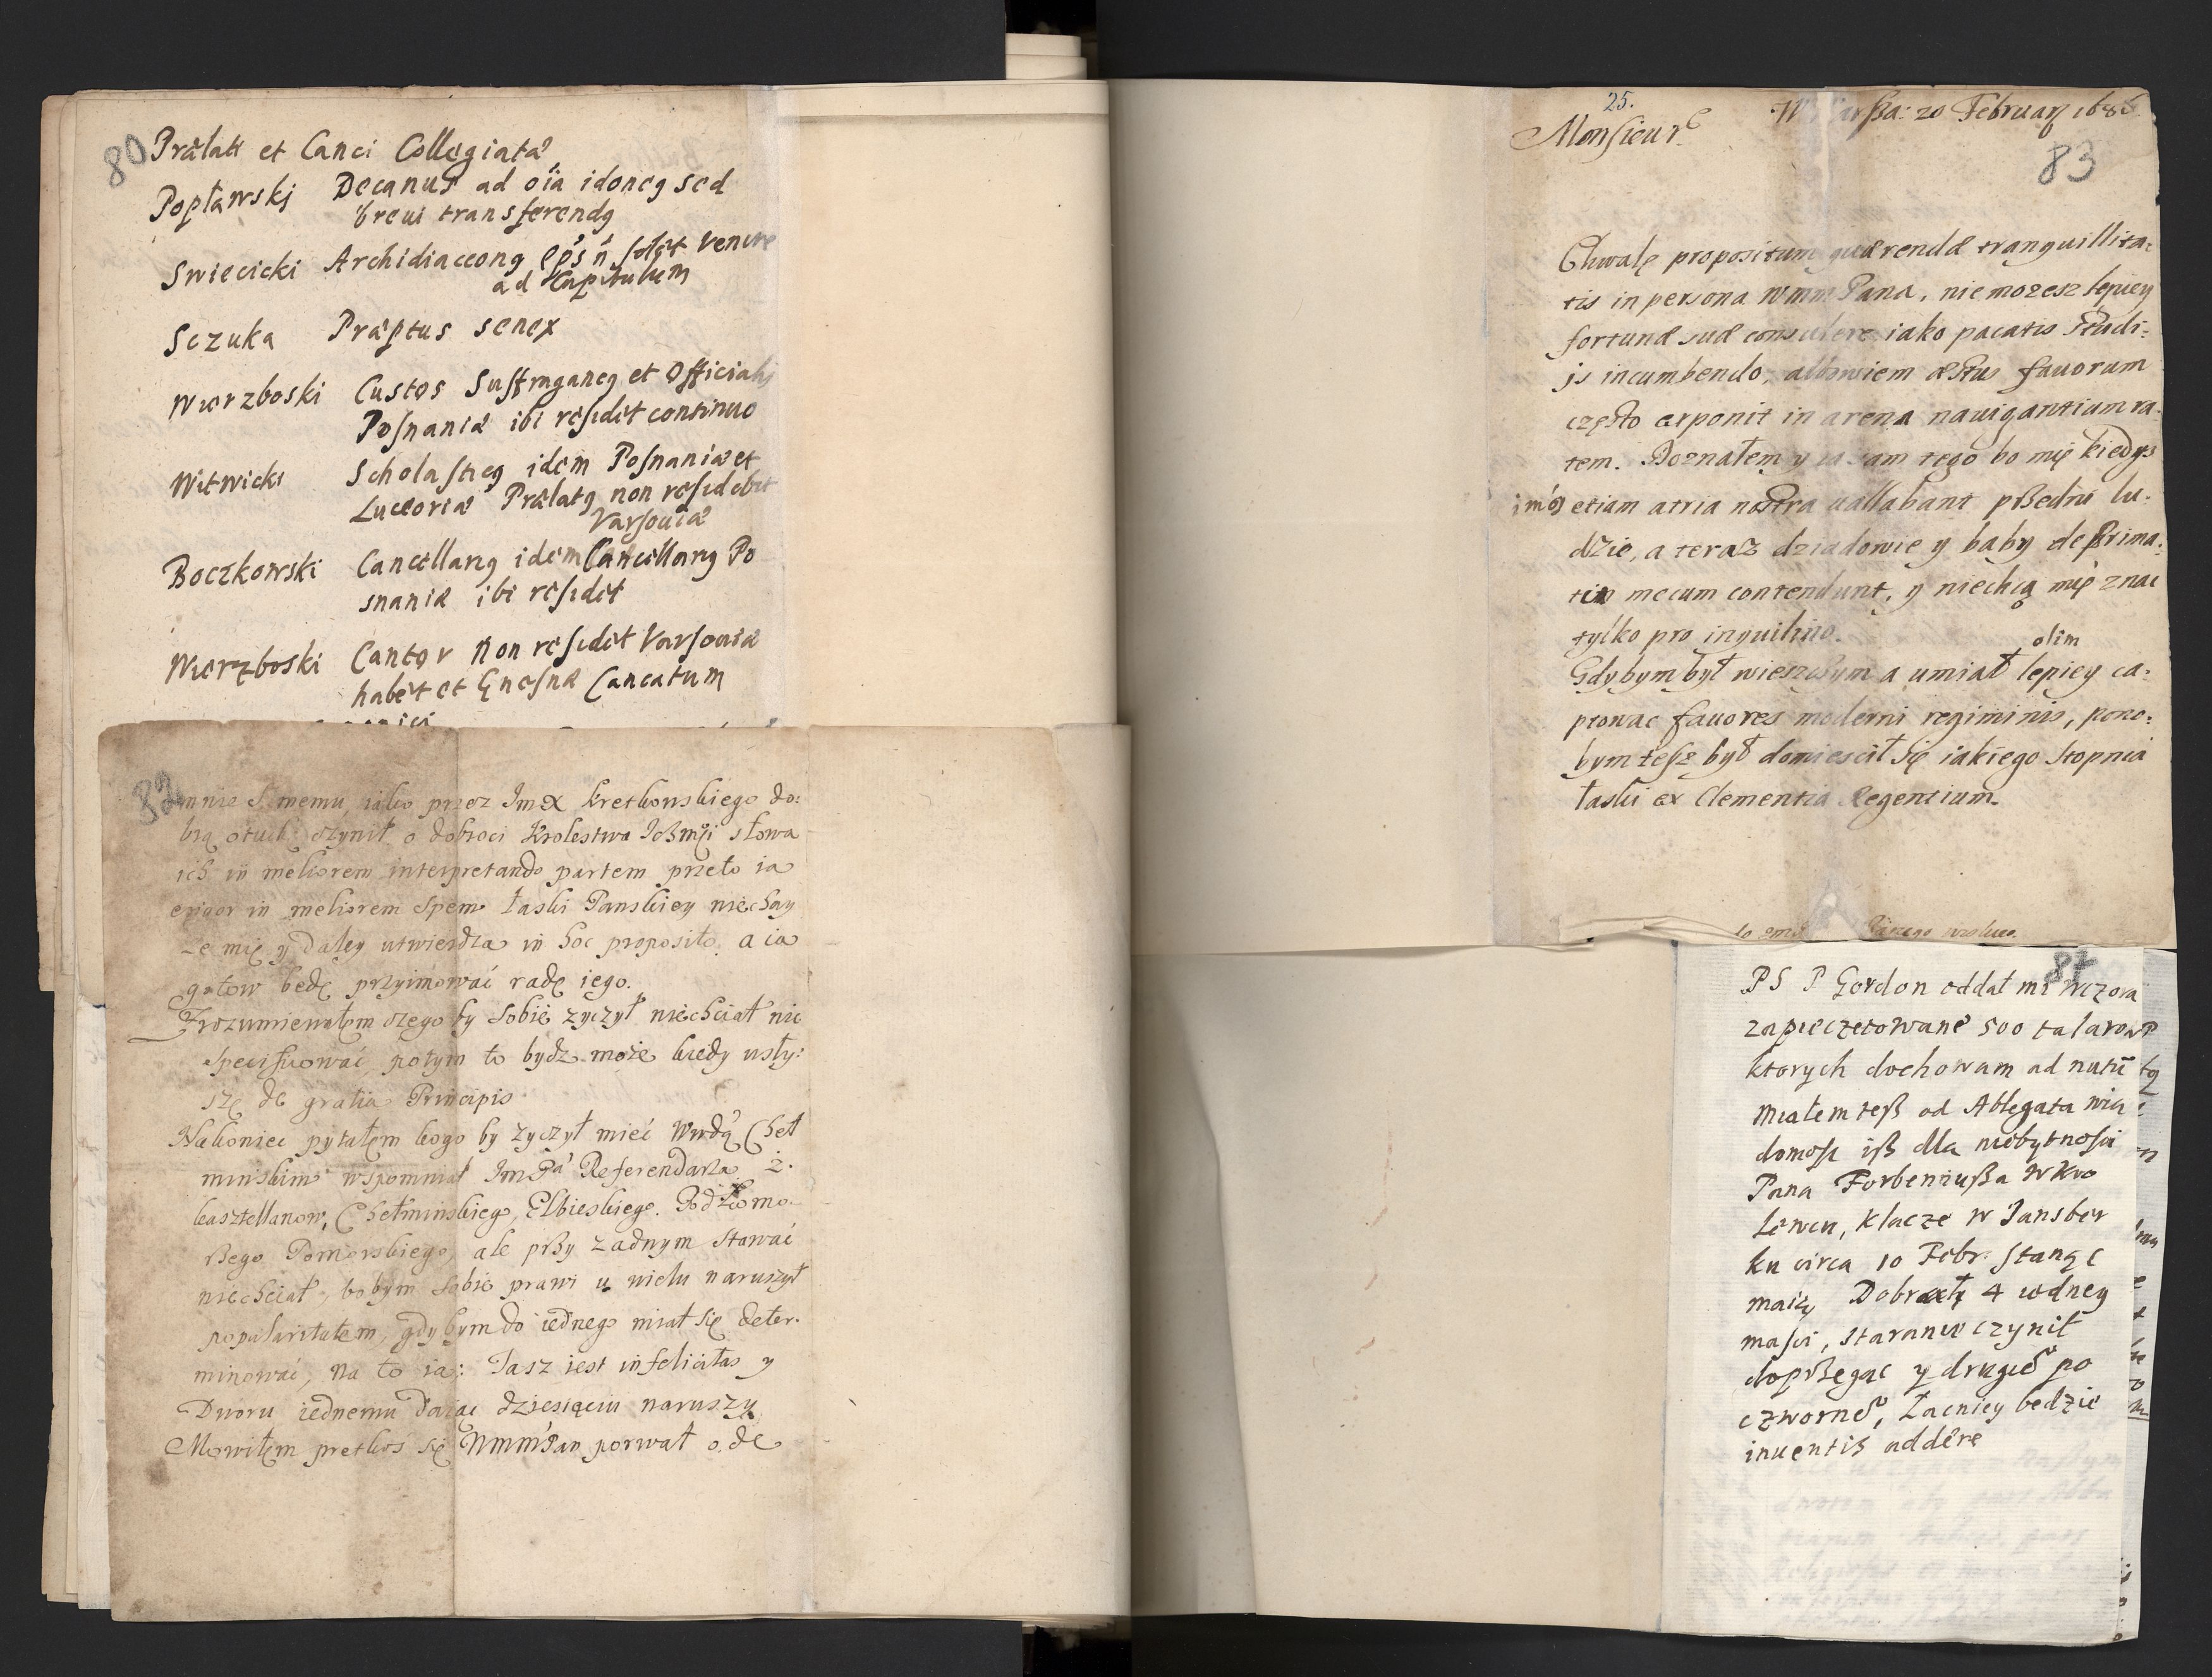 80
Prælati et Canci Collegiatæ
Popławskj Decanus ad oia idoneg sed
breui transferendg
Swiecicki Archidiaceong solet venire
ad Capitulum
Sczuka Præptus senex
Wierzboski Custos Suffraganeg et Officialis
Posnaniæ ibi residet continuo
Witwicki Scholasticg idem Posnaniæ et
Luceoriæ Prælatg non residebit
Varsouiæ
Boczkowski Cancellarg idem Cancellarg Po
snaniæ ibi residet
Wierzboski Cantor Non residet Varsouiæ
habet et Gnesnæ Cancatum
82
mnie samemu, iako przez Imx Kretkowskiego do:
brą otuchę czynił o dobroci Krolestwa słowa
ich in meliorem interpretando partem przeto ia
erigor in meliorem spem łaski Panskiey niechay
ze mię y daley utwierdza in hoc proposito. a ia
gotow będę przyimować radę iego.
Zrozumiewałem czego by sobie zyczył niechciał nic
specifikować, potym to bydz może kiedy usły:
szę de gratia Principis
Nakoniec pytałem kogo by życzył mieć Wwdą Cheł
minskim wspomniał ImPa Referendarza, z.
kasztellanow, Chełminskiego, Elbieskiego. Podkomo-
rßego Pomorskiego, ale pßy zadnym stawać
niechciał, bobym sobie prawi u wielu naruszył
popularitatem, gdybym do iednego miał się deter.
minować, na to ia: Tasz iest infelicitas y
Dworu iednemu daiąc dziesiąciu naruszy
Mowiłem pretkoś się WmmPan porwał o. de
25.
Monsieur W Warßa: 20 Februarÿ 168
83
Chwalę propositum quærendæ tranquillita:
tis in persona Wmm Pana, nie możesz lepiey
fortunæ suæ consulere iako pacatis Studi:
js incumbendo, albowiem æstus fauorum
często exponit in arena nauigantium ra.
tem. Doznałem y ia sam tego bo mię kiedys
etiam atria nostra uallabant pßedni lu:
dzie, a teraz dziadowie y baby de prima:
tu mecum contendunt, y niechcą mię znac
tylko pro inquilino.
olim
Gdybym był wieszczym a umiał lepiey ca:
ptowac fauores moderni regiminis, pono:
bym tesz był domiescił się iakiego stopnia
łaski ex Clementia Regentium.
87
PS P Gordon oddał mi wczora
zapieczetowane 500 talarow
ktorych dochowam ad nutu
miałem teß od Ablegata wia
domosc iß dla niebytnosci
Pana Forbeniußa w Kro
lewcu, klacze w Jansbor
ku circa 10 Febr. stanąc
maią Dobrały 4 iedney
masci, staranie czynił
dopßegac y drugie po
czworne, Łacniey bedzie
inuentis addere